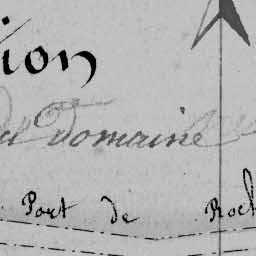 ion
du Domaine
Port de Roch